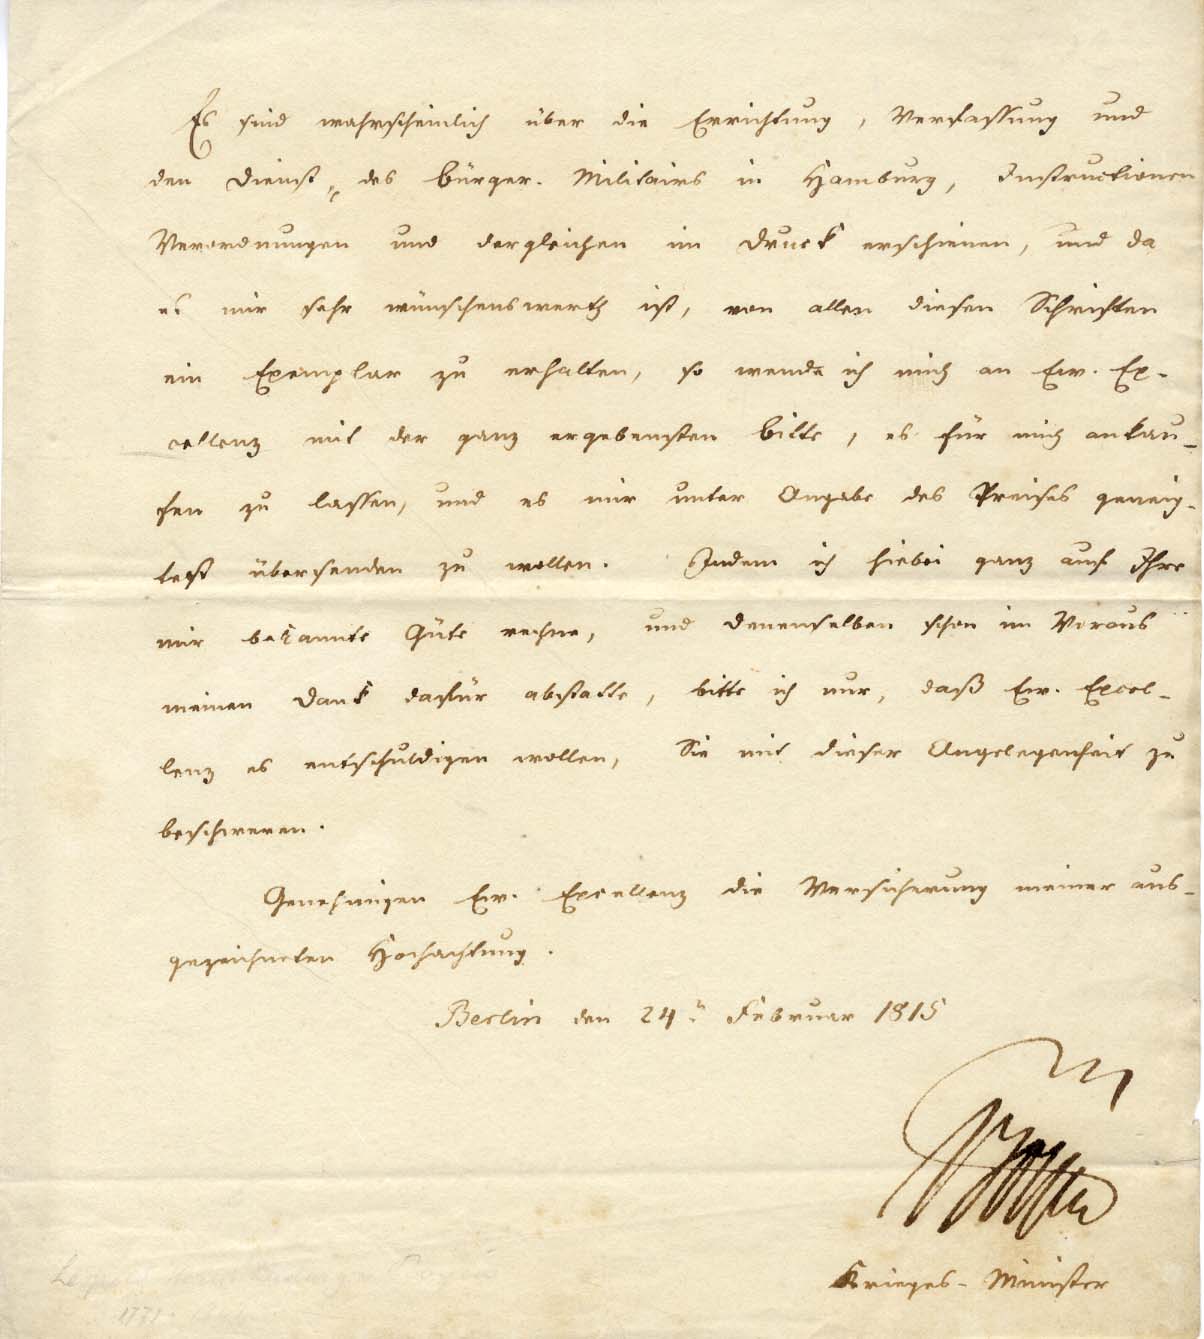 Es sind wahrscheinlich über die Errichtung, Verfassung und
den Dienst des Bürger-Militairs in Hamburg, Instructionen
Verordnungen und dergleichen im Druck erschienen, und da
es mir sehr wünschenswerth ist, von allen diesen Schriften
ein Exemplar zu erhalten, so wende ich mich an Ew. Ex-
cellenz mit der ganz ergebensten Bitte, es für mich ankau-
fen zu lassen, und es mir unter Angabe des Preises geneig-
test übersenden zu wollen. Indem ich hiebei ganz auf Ihre
mir bekannte Güte rechne, und denenselben schon im Voraus
meinen Dank dafür abstatte, bitte ich nur, daß Ew. Excel-
lenz es entschuldigen wollen, Sie mit dieser Angelegenheit zu
beschweren.
Genehmigen Ew. Excellenz die Versicherung meiner aus-
gezeichneten Hochachtung.
Berlin den 24n Februar 1815
Boyen
Krieges-Minister